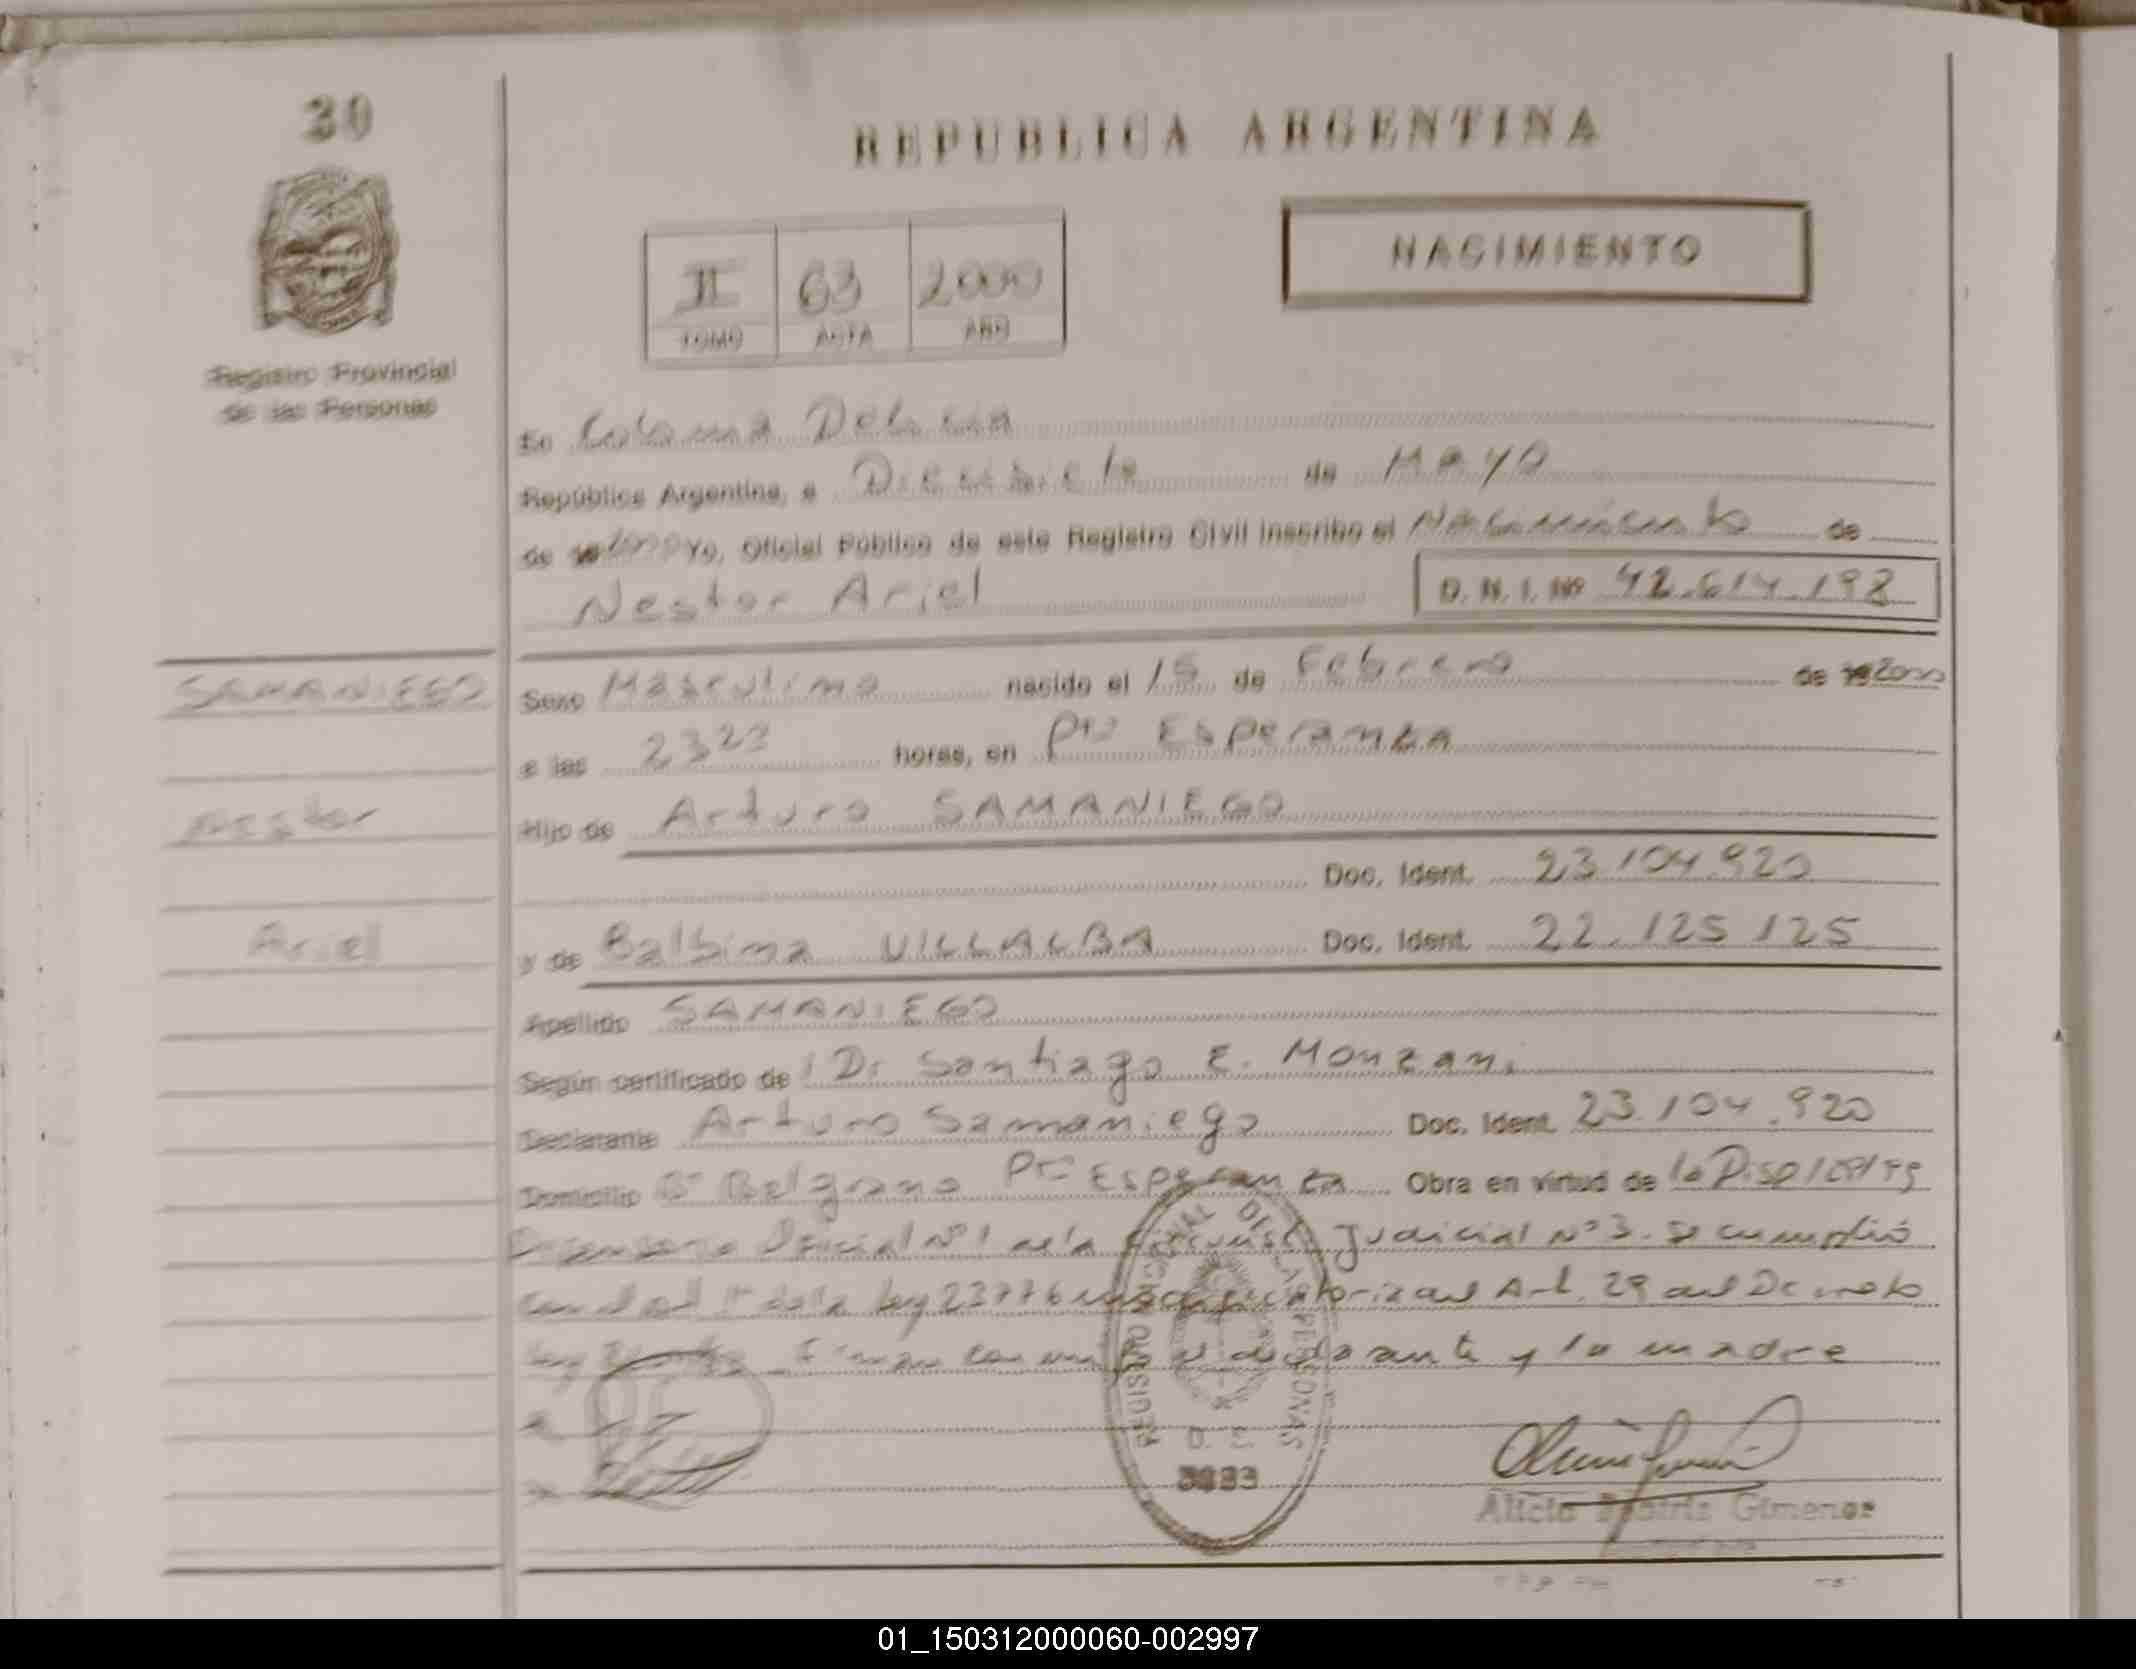 30
REPUBLICA ARGENTINA
NACIMIENTO
II 63 2000
TOMO ACTA AÑO
Registro Provincial
de las Personas
En Colonia Delicia
República Argentina, a Diecisiete de Mayo
de 2000 Yo, Oficial Público de este Registro Civil inscribo el Nacimiento de
Nestor Ariel D. N. I. Nº 42.614.198
SAMANIEGO
Sexo Masculino nacido el 15 de Febrero de 2000
a las 23 23 horas, en Pto Esperanza
Nestor
Hijo de Arturo SAMANIEGO
Doc. Ident. 23.104.920
Ariel
y de Balbina VILLALBA Doc. Ident. 22.125.125
Apellido SAMANIEGO
Según certificado de Dr Santiago E. Monzan.
Declarante Arturo Samaniego Doc. Ident. 23.104.920
Domicilio Bº Belgrano Pto Esperanza Obra en virtud de la Disp
Oficial Nº 1 de la Judicial Nº 3. Se cumplió
con el de la ley 23776 del Art. 29 del Decreto
ley Firman el declarante y la madre
REGISTRO PROVINCIAL DE LAS PERSONAS
3993
Alicia Beatriz Gimenez
01_150312000060-002997